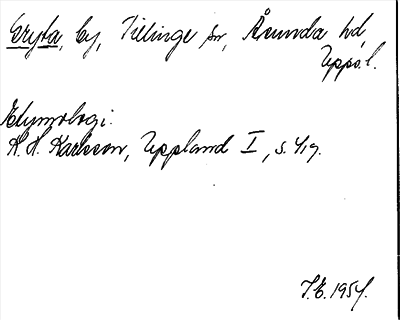 Gryta, by, Tillinge sn, Åsunda hd,
Upps.l.
Etymologi:
K. H. Karlsson, Uppland I, s. 419.
I.E. 1954.